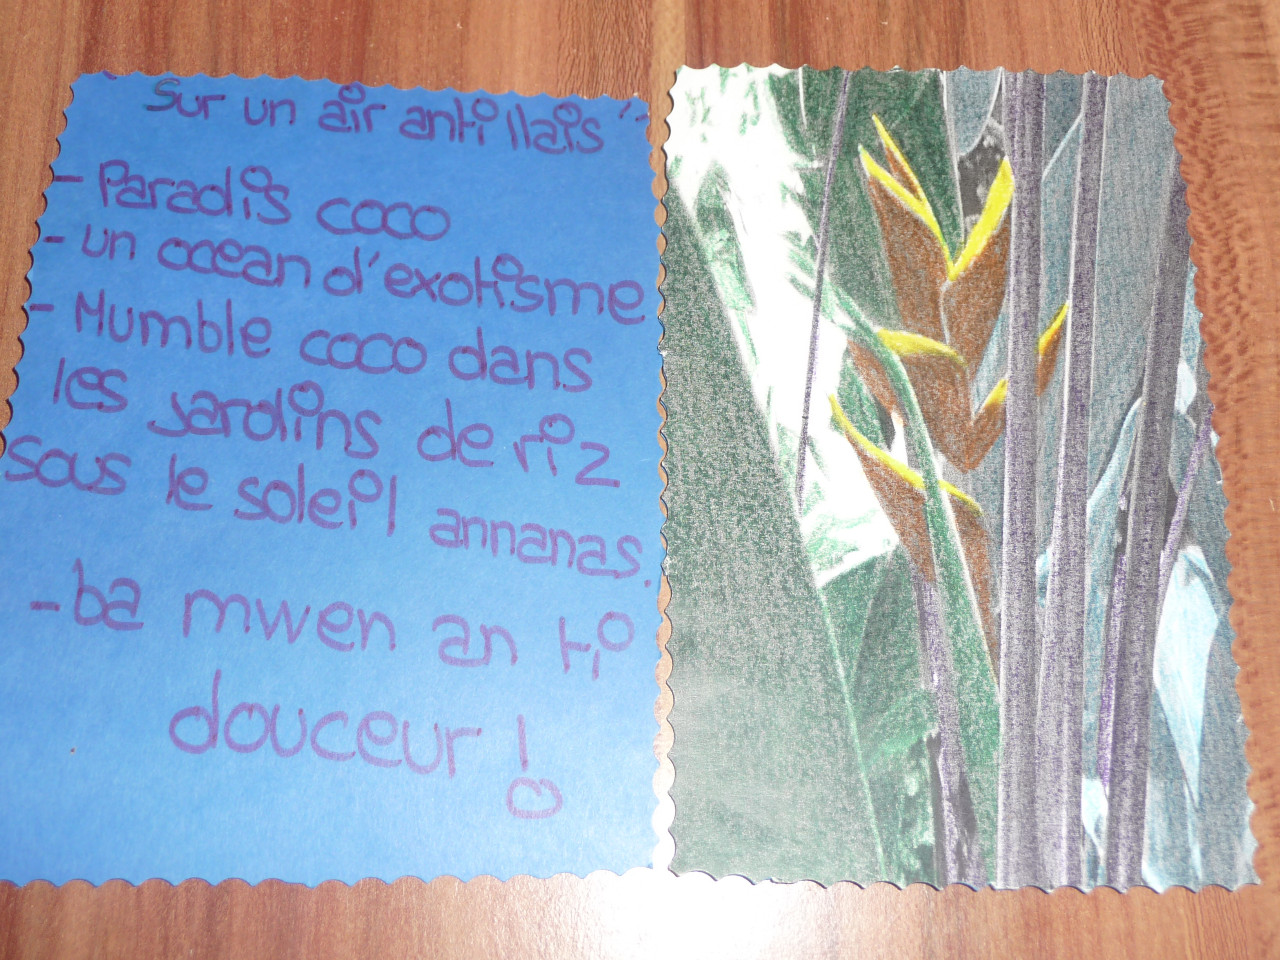 Sur un air antillais
- Paradis coco
- un ocean d'exotisme
- Mumble coco dans
les jardins de riz
sous le soleil annanas.
- ba mwen an ti
douceur !